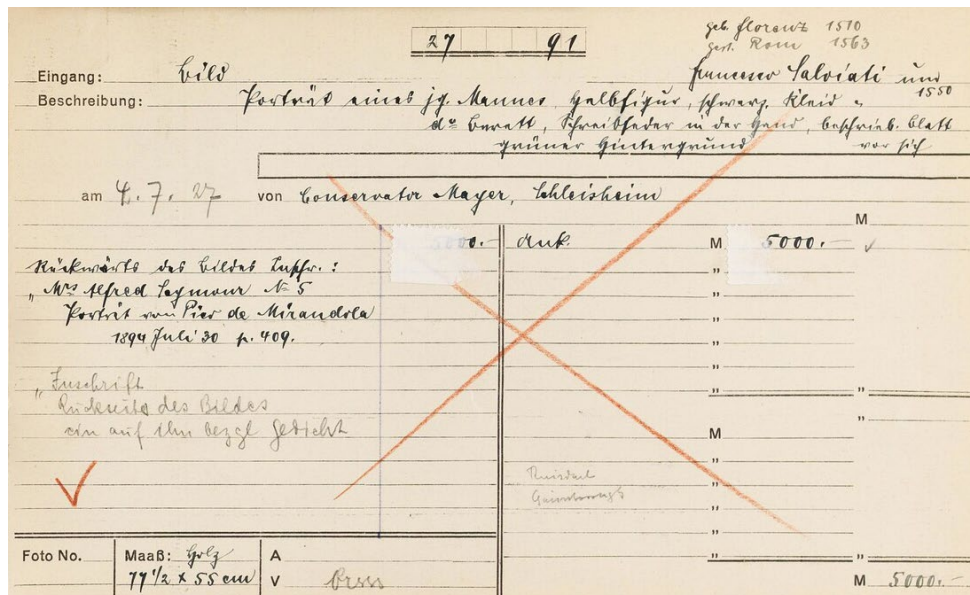 27 91
geb. Florenz 1510
gest. Rom 1563
Eingang: Bild Francesco Salviati um
1550
Beschreibung: Porträt eines jg. Mannes, Halbfigur, schwarz. Kleid u.
do Barett, Schreibfeder in der Hand, beschrieb. Blatt
grüner Hintergrund vor sich
am 4.7.27 von Conservator Mayer, Schleisheim
M
5000.- Ank. M 5000.-
Rückwärts des Bildes Inschr.:
„Mrs Alfred Seymour No 5
Porträt von Pico de Mirandola
1894 Juli 30 p. 409.
„Inschrift
Rückseite des Bildes
ein auf ihn bezgl Gedicht
M
Foto No. Maaß: Holz A
77 1/2 x 55 cm V
M 5000.-